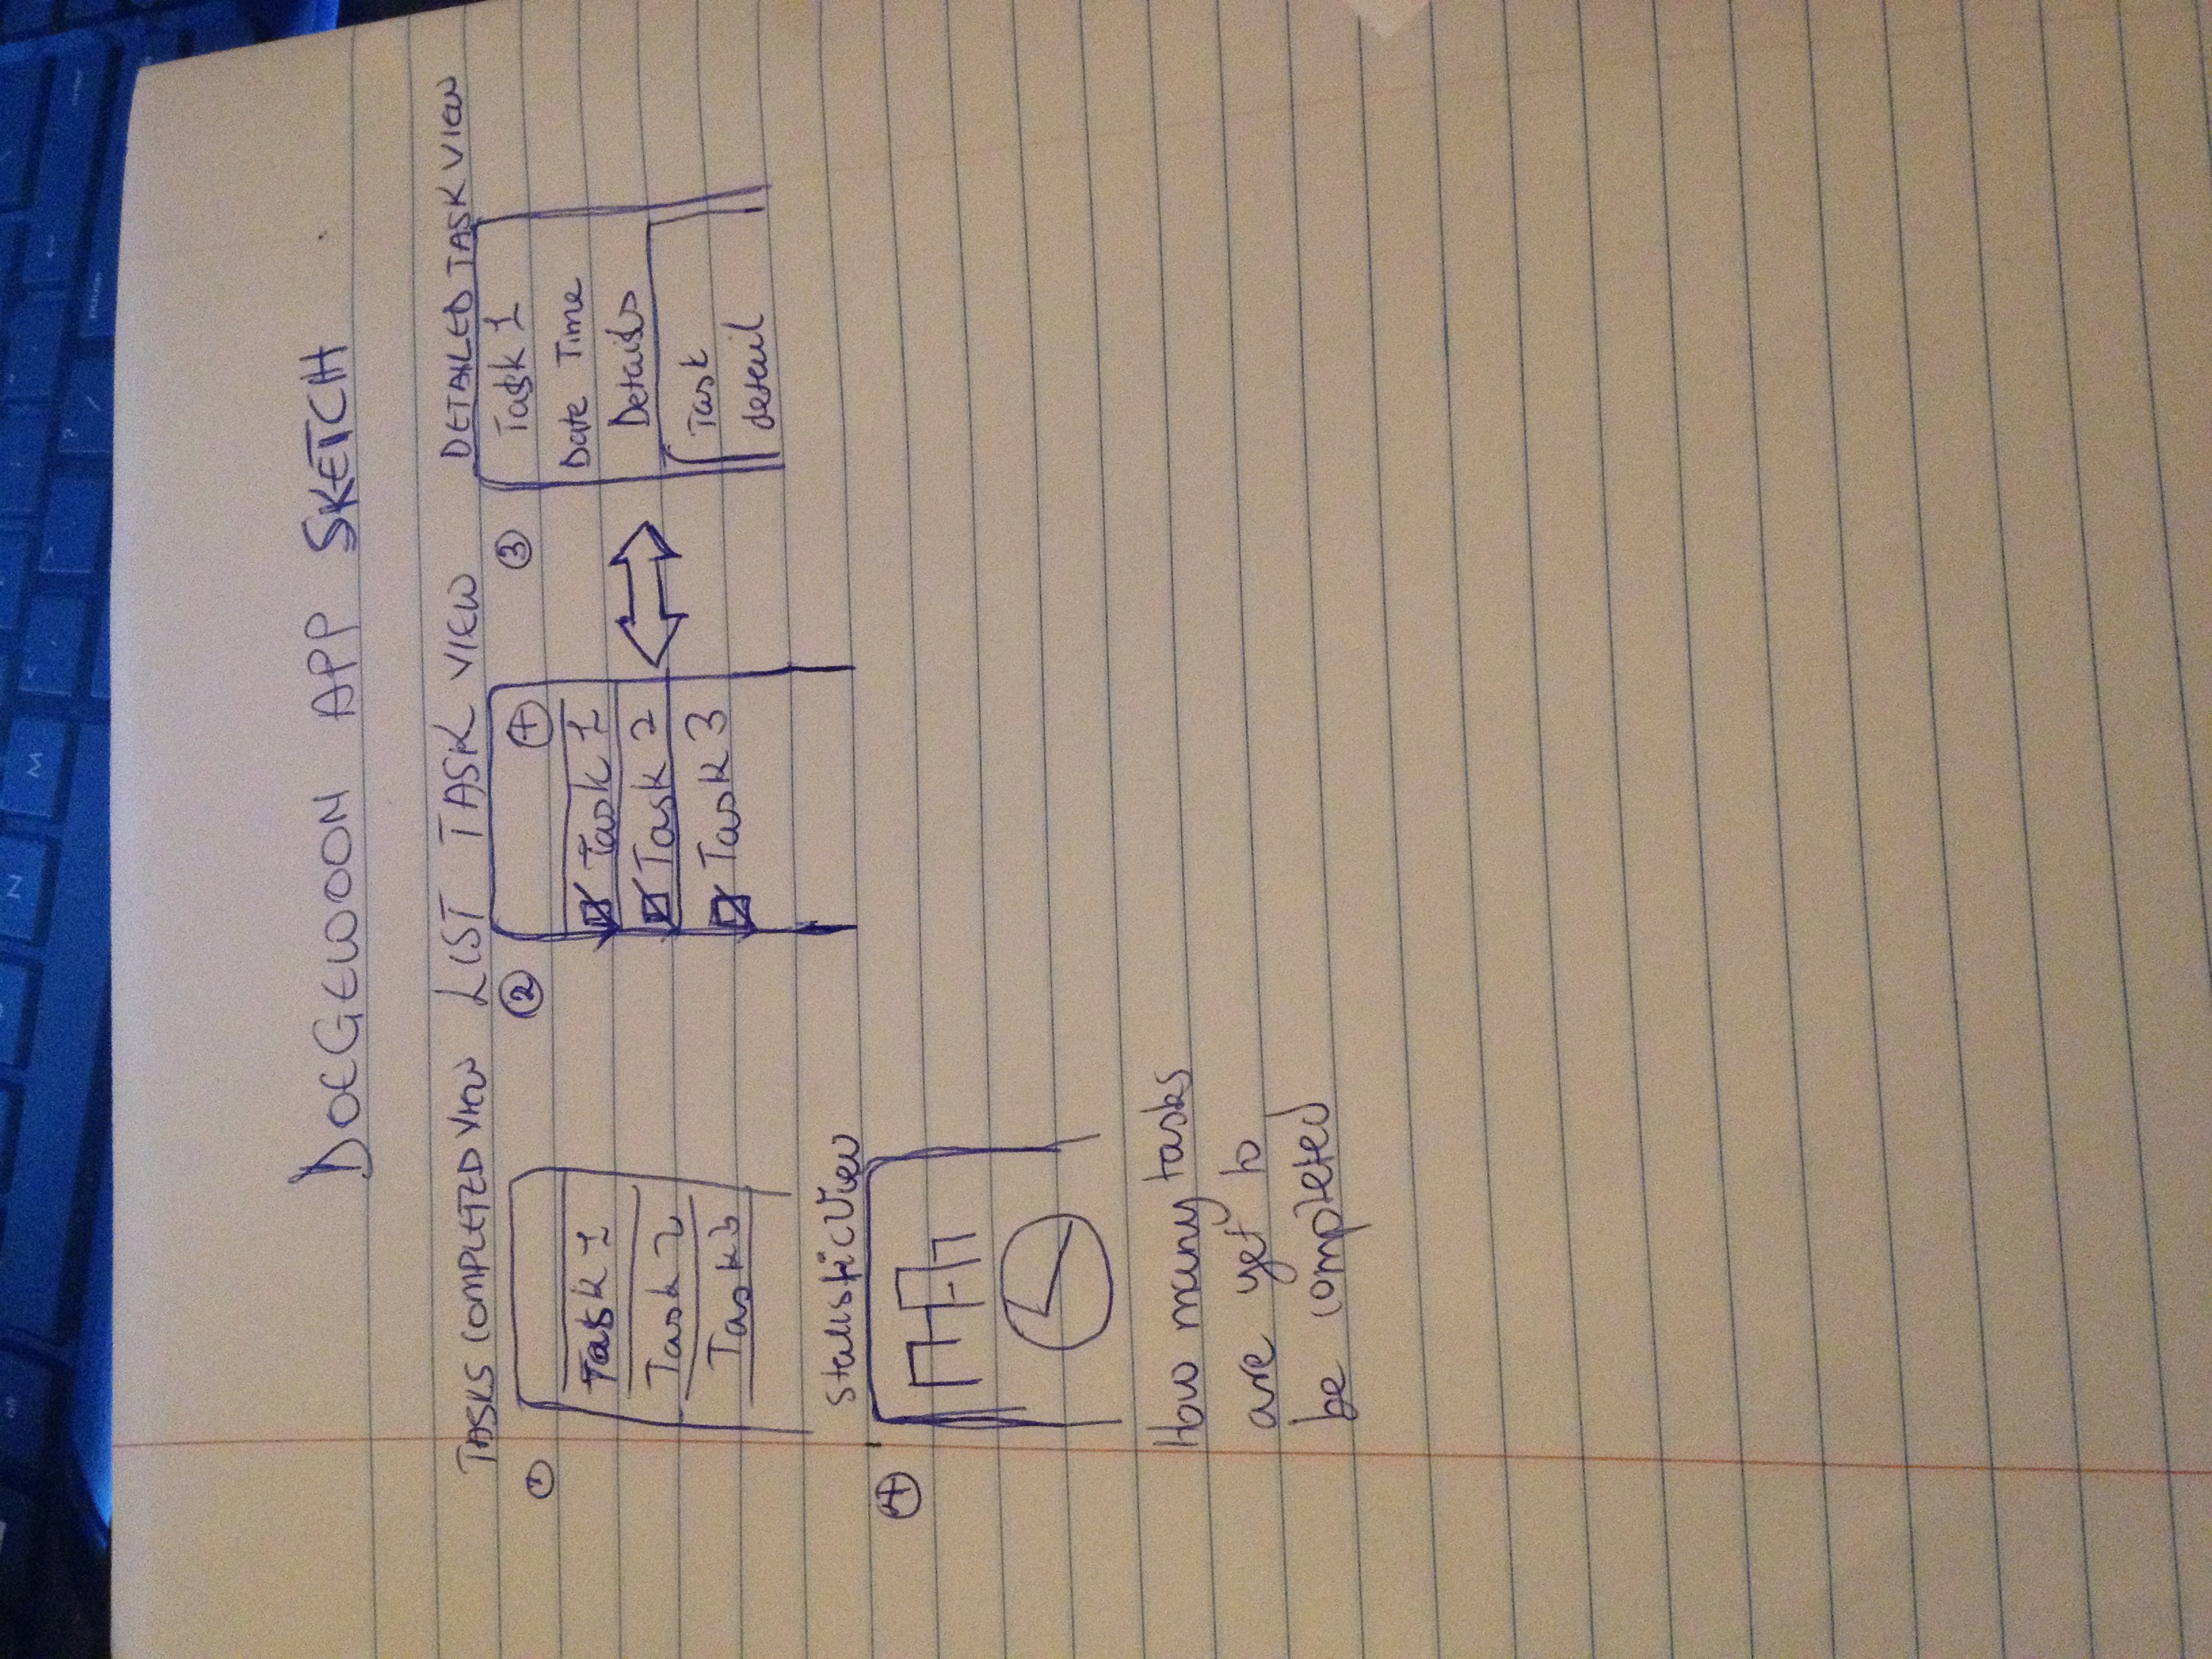 DOEGEWOON APP SKETCH
TASKS COMPLETED VIEW
1
Task 1
Task 2
Task 3
LIST TASK VIEW
2
+
Task 1
Task 2
Task 3
DETAILED TASK VIEW
3
Task 1
Date Time
Details
Task
detail
Statistic View
4
How many tasks
are yet to
be completed
N
M
<
>
?
/
pause
enter